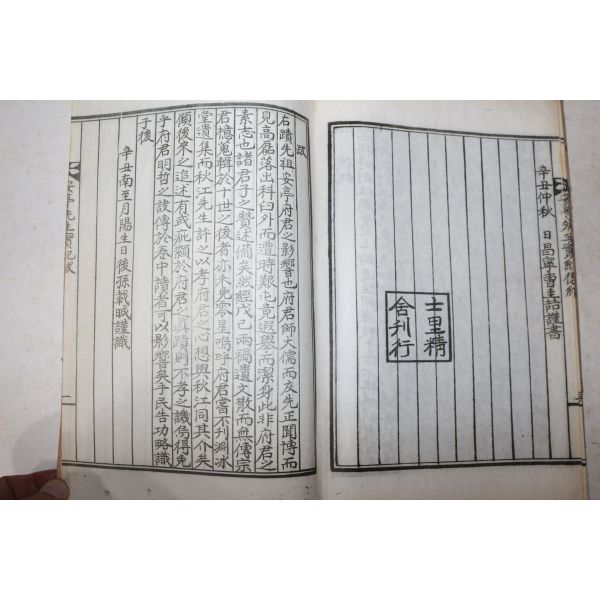 辛丑仲秋 日昌寧曺圭喆謹書
士里精
舍刊行
跋
右蹟先祖安亭府君之影響也府君師大儒而友先正聞博而
見高磊落出科臼外而遭時艱屯竟遐擧而潔身此非府君之
素志也諸君子之贊述備矣然經戊己兩禍遺文散而無傳宗
君檍蒐輯於十世之後者亦未免零星嗚呼府君嘗不刊溯冰
堂遺集而秋江先生許之以孝府君之心想與秋江同其介矣
顧後來之追述有或疵纇於府君之眞蹟則不孝之譏烏得免
乎府君明哲之謨傳於卷中讀者可以影響矣手民告功略識
于後
辛丑南至月陽生日後孫載 謹識
安亭先生實紀跋
二